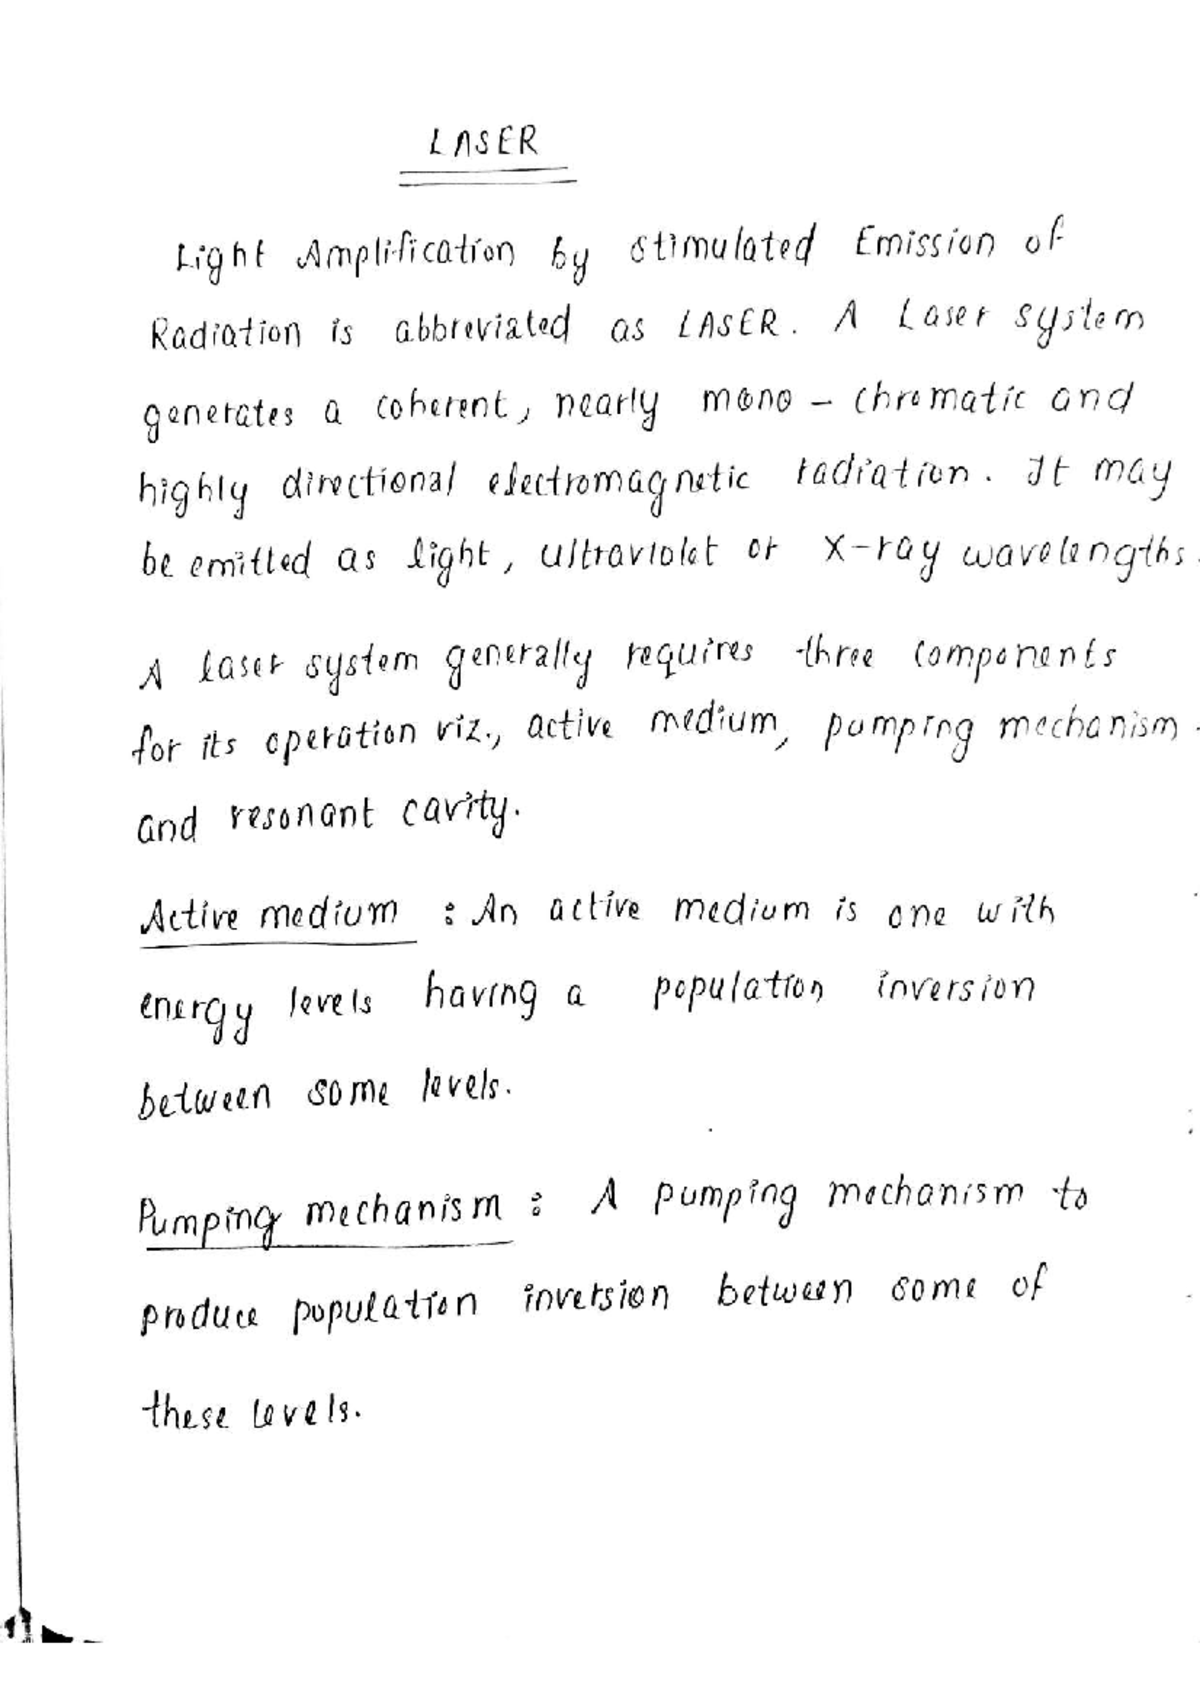 LASER
Light Amplification by stimulated Emission of
Radiation is abbreviated as LASER. A Laser system
generates a coherent, nearly mono - chromatic and
highly directional electromagnetic radiation. It may
be emitted as light, ultraviolet or X-ray wavelengths.
A laser system generally requires three components
for its operation viz., active medium, pumping mechanism
and resonant cavity.
Active medium : An active medium is one with
energy levels having a population inversion
between some levels.
Pumping mechanism : A pumping mechanism to
produce population inversion between some of
these levels.